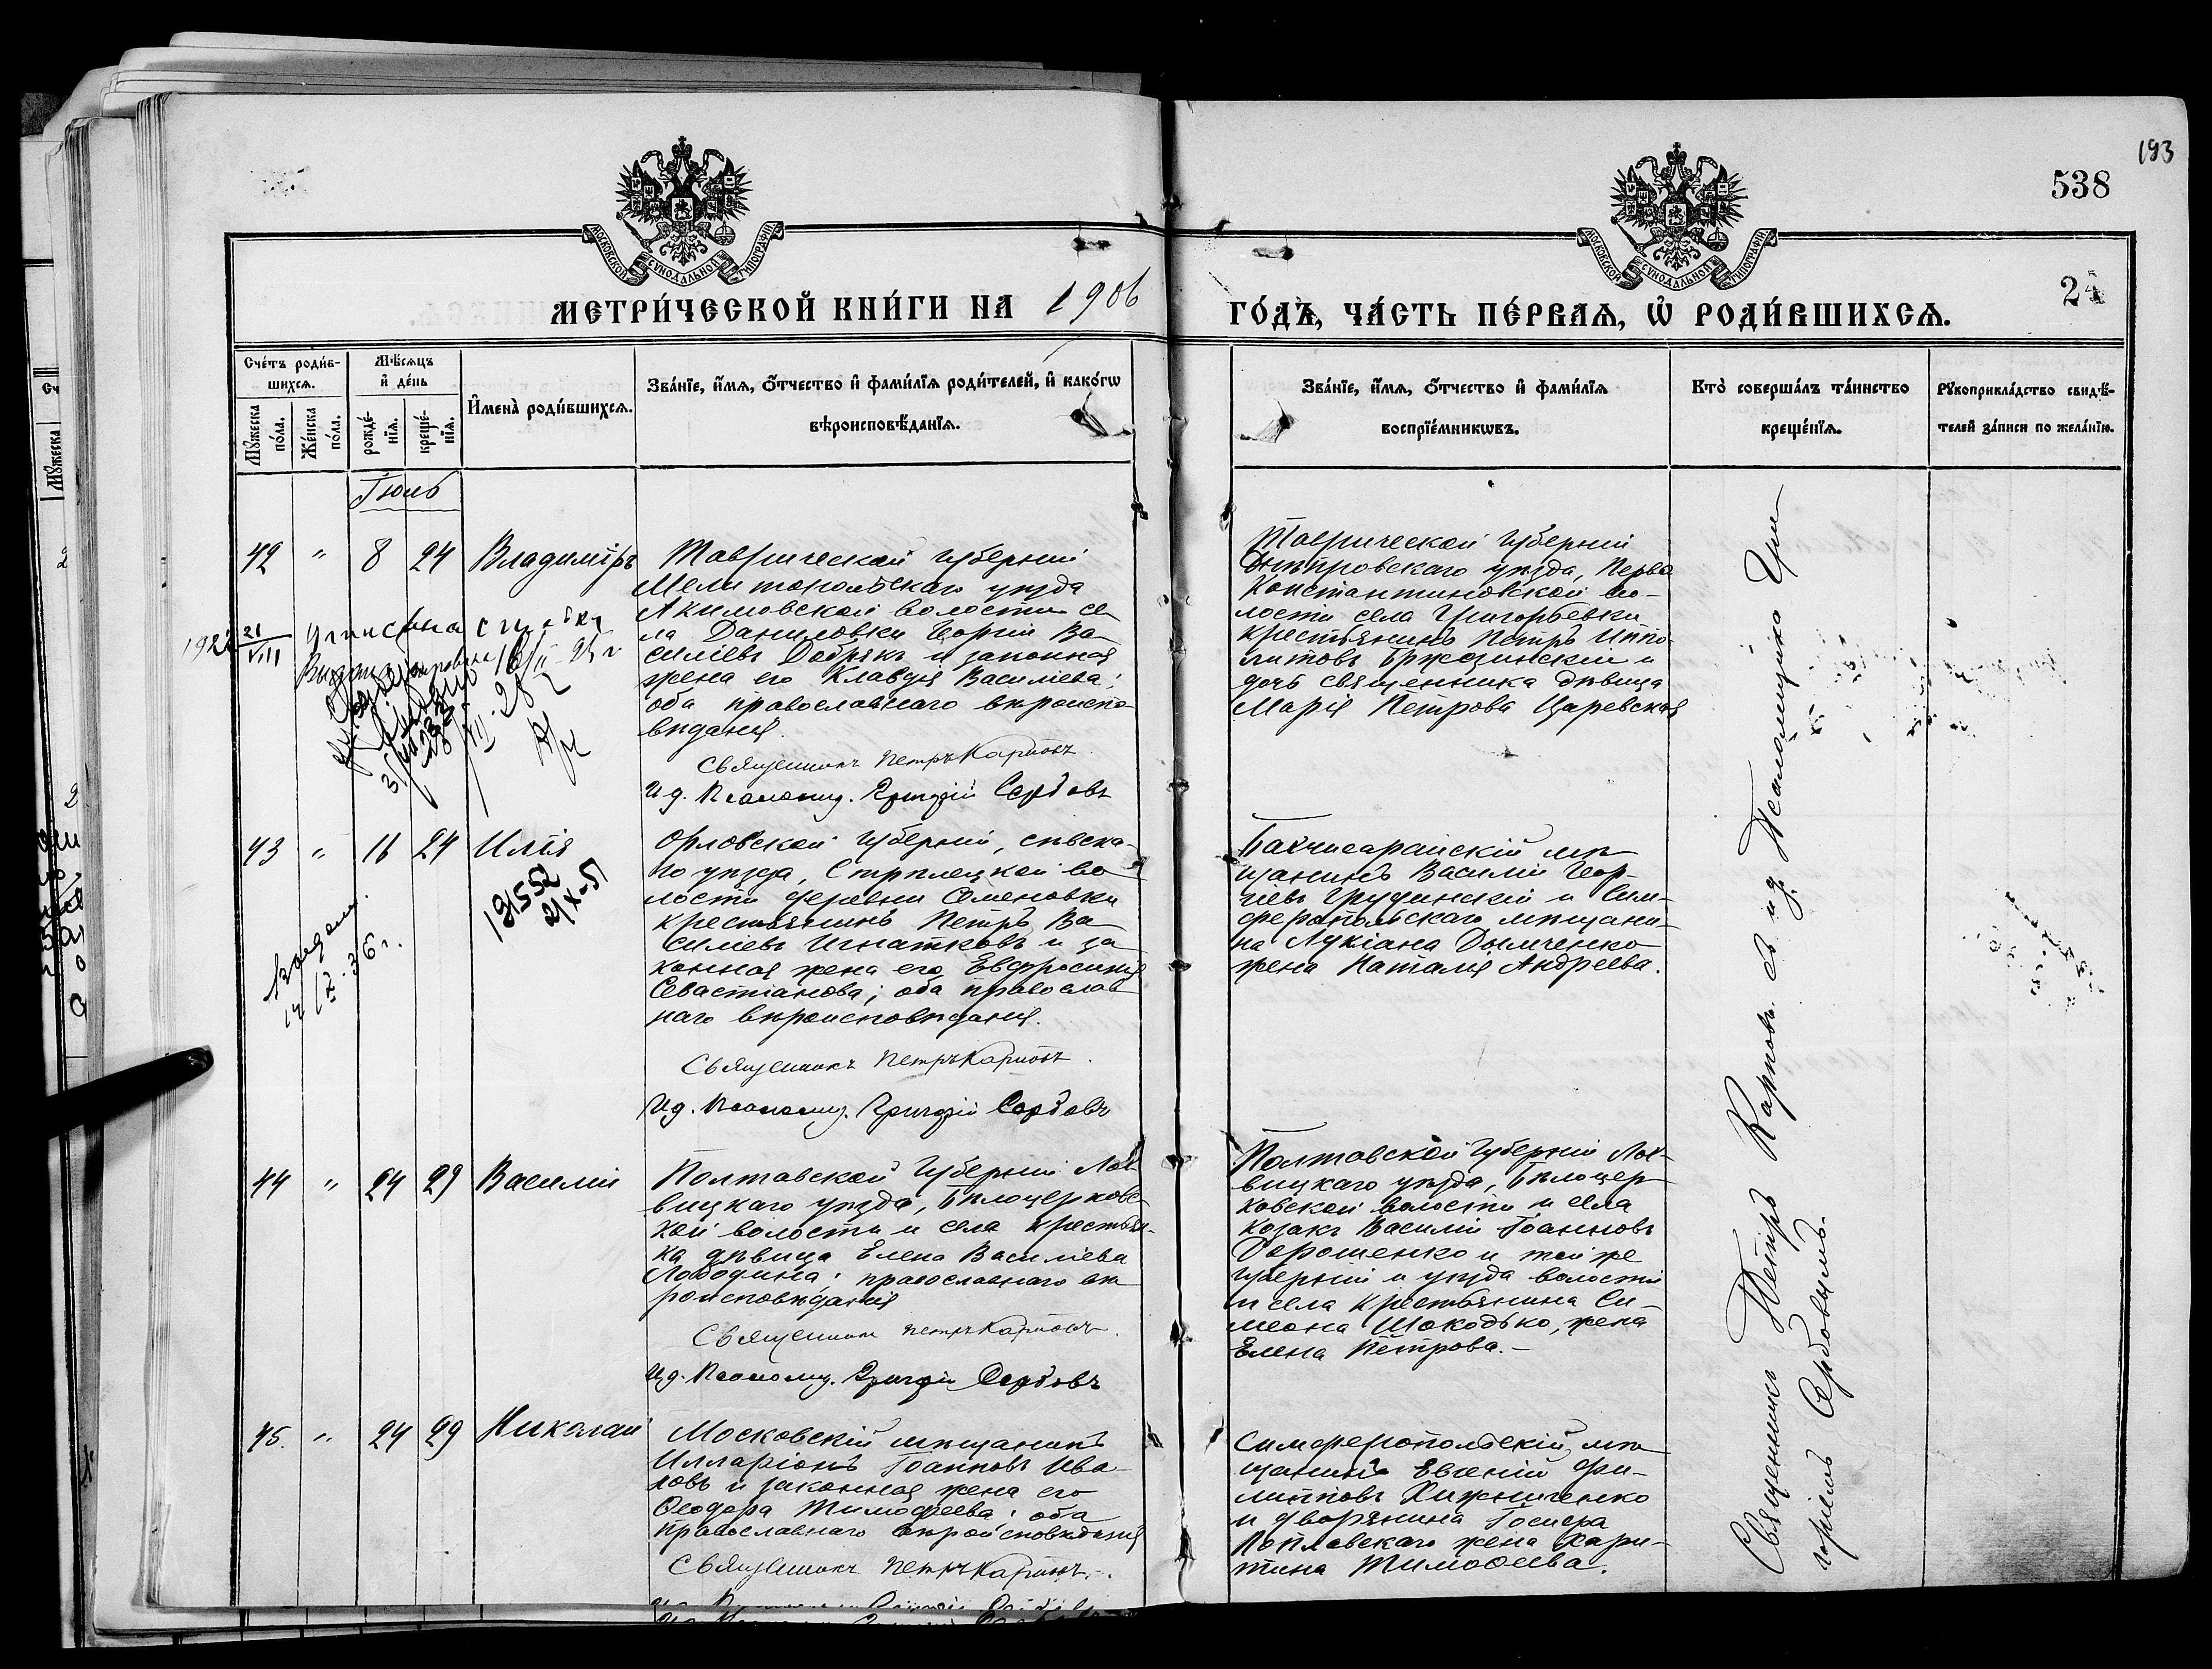 193
538
24
МОСКОВСКОЙ СѴНОДАЛЬНОЙ ТИПОГРАФІИ
МОСКОВСКОЙ СѴНОДАЛЬНОЙ ТИПОГРАФІИ
МЕТРИ́ЧЕСКОЙ КНИ́ГИ НА 1906 ГО́ДЪ, ЧА́СТЬ ПЕ́РВАѦ, Ѡ҆ РОДИ́ВШИХСѦ.
Сче́тъ роди́в-
шихсѧ.
Мꙋ́жеска по́ла.
Же́нска по́ла.
Мѣ́сѧцъ
и҆ де́нь
рожде́-
нїѧ.
креще́-
нїѧ.
И҆мена̀ роди́вшихсѧ.
Зва́нїе, и҆́мѧ, ѻ҆́тчество и҆ фами́лїѧ роди́телей, и҆ како́гѡ
вѣроисповѣ́данїѧ.
Зва́нїе, и҆́мѧ, ѻ҆́тчество и҆ фами́лїѧ
воспрїе́мникѡвъ.
Кто̀ соверша́лъ та́инство
креще́нїѧ.
Рꙋкоприкла́дство свидѣ́-
телей за́писи по жела́нїю.
Іюль
42 " 8 24 Владиміръ
Таврической губерніи
Мелитопольскаго уѣзда
Акимовской волости се
ла Даниловки Георгій Ва
силіевъ Добрякъ и законная
жена его Клавдія Василіева;
оба православнаго вѣроиспо-
вѣданія.
Священникъ Петръ Карповъ.
И д. Псаломщ. Григорій Сербовъ
Таврической губерніи
Днѣпровскаго уѣзда, Перво
Константиновской во-
лости села Григорьевки
крестьянинъ Петръ Иппо-
литовъ Бржезинскій и
дочь священника дѣвица
Марія Петрова Царевская
21
VIII
43 " 16 24 Илія
191552
21/X-51
Орловской губерніи, Сѣвска-
го уѣзда, Стрѣлецкой во
лости деревни Семеновки
крестьянинъ Петръ Ва
силіевъ Игнатковъ и за
конная жена его Евфросинія
Севастіанова; оба православ
наго вѣроисповѣданія.
Священникъ Петръ Карповъ.
И д. Псаломщ. Григорій Сербовъ
Бахчисарайскій мѣ-
щанинъ Василій Геор-
гіевъ Грудинскій и Сим-
феропольскаго мѣщани-
на Лукіана Дымченко
жена Наталія Андреева.
44 " 24 29 Василій
Полтавской губерніи Лох-
вицкаго уѣзда, Бѣлоцерковс-
кой волости и села крестьян-
ка дѣвица Елена Василіева
Лободина; православнаго вѣ
роисповѣданія
Священникъ Петръ Карповъ.
И д. Псаломщ. Григорій Сербовъ
Полтавской губерніи Лох-
вицкаго уѣзда, Бѣлоцер-
ковской волости и села
козакъ Василій Іоанновъ
Дорошенко и той же
губерніи и уѣзда волости
и села крестьянина Си-
меона Шокодько, жена
Елена Петрова.-
45. " 24 29 Николай
Московскій мѣщанинъ
Илларіонъ Іоанновъ Ива-
новъ и законная жена его
Ѳеодора Тимофеева; оба
православнаго вѣроисповѣданія
Священникъ Петръ Карповъ.
Симферопольскій мѣ-
щанинъ Евгеній Фи-
липповъ Хижниченко
и дворянина Іосифа
Поплавскаго жена Хари-
тина Тимоѳеева.
Священникъ Петръ Карповъ съ и.д. Псаломщика Гри-
горіемъ Сербовымъ.